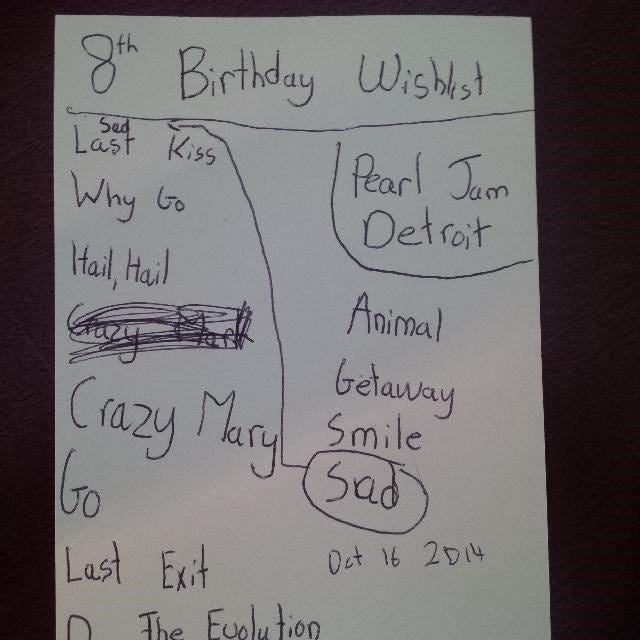 8th Birthday Wishlist
Sad
Last Kiss
Why Go
Hail, Hail
Crazy Mary
Go
Last Exit
D The Evolution
Pearl Jam
Detroit
Animal
Getaway
Smile
Sad
Oct 16 2014